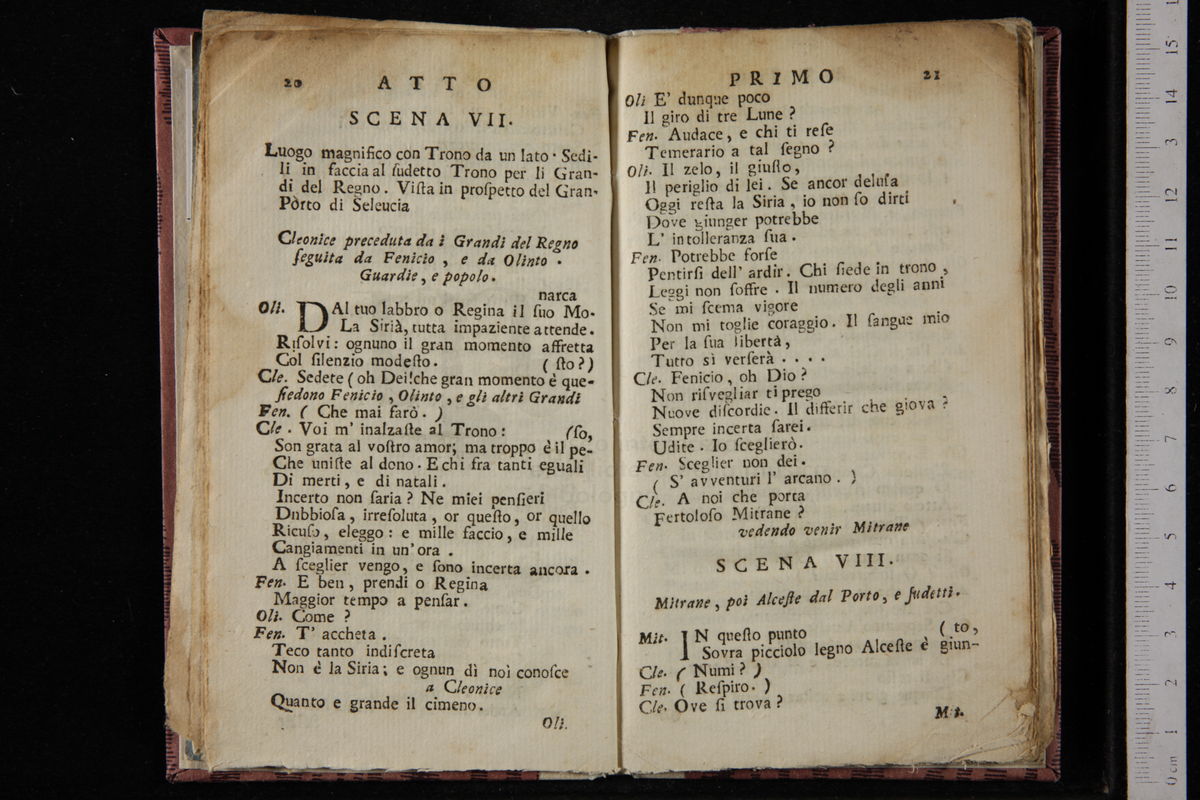 20 ATTO
SCENA VII.
Luogo magnifico con Trono da un lato. Sedi-
li in faccia al ſudetto Trono per li Gran-
di del Regno. Viſta in proſpetto del Gran-
Pòrto di Seleucia
Cleonice preceduta da i Grandi del Regno
ſeguita da Fenicio, e da Olinto.
Guardie, e popolo.
narca
Oli. DAl tuo labbro o Regina il ſuo Mo-
La Sirià, tutta impaziente attende.
Riſolvi: ognuno il gran momento affretta
Col ſilenzio modeſto. (ſto?)
Cle. Sedete (oh Dei! che gran momento è que-
ſiedono Fenicio, Olinto, e gli altri Grandi
Fen. (Che mai farò.)
Cle. Voi m' inalzaſte al Trono: (ſo,
Son grata al voſtro amor; ma troppo è il pe-
Che uniſte al dono. E chi fra tanti eguali
Di merti, e di natali.
Incerto non ſaria? Ne miei penſieri
Dnbbioſa, irreſoluta, or queſto, or quello
Ricuſo, eleggo: e mille faccio, e mille
Cangiamenti in un' ora.
A ſceglier vengo, e ſono incerta ancora.
Fen. E ben, prendi o Regina
Maggior tempo a penſar.
Oli. Come?
Fen. T' accheta.
Teco tanto indiſcreta
Non è la Siria; e ognun dì noi conoſce
a Cleonice
Quanto e grande il cimeno.
Oli.
PRIMO 21
Oli E' dunque poco
Il giro di tre Lune?
Fen. Audace, e chi ti reſe
Temerario a tal ſegno?
Oli. Il zelo, il giuſto,
Il periglio di lei. Se ancor deluſa
Oggi reſta la Siria, io non ſo dirti
Dove giunger potrebbe
L' intolleranza ſua.
Fen. Potrebbe forſe
Pentirſi dell' ardir. Chi ſiede in trono,
Leggi non ſoffre. Il numero degli anni
Se mi ſcema vigore
Non mi toglie coraggio. Il ſangue mio
Per la ſua libertà,
Tutto si verſerà....
Cle. Fenicio, oh Dio?
Non riſvegliar ti prego
Nuove diſcordie. Il differir che giova?
Sempre incerta ſarei.
Udite. Io ſceglierò.
Fen. Sceglier non dei.
(S' avventuri l' arcano.)
Cle. A noi che porta
Fertoloſo Mitrane?
vedendo venir Mitrane
SCENA VIII.
Mitrane, poi Alceſte dal Porto, e ſudetti.
Mit. IN queſto punto (to,
Sovra picciolo legno Alceſte è giun-
Cle. (Numi?)
Fen. (Reſpiro.)
Cle. Ove ſi trova?
Mit.
0 cm 1 2 3 4 5 6 7 8 9 10 11 12 13 14 15